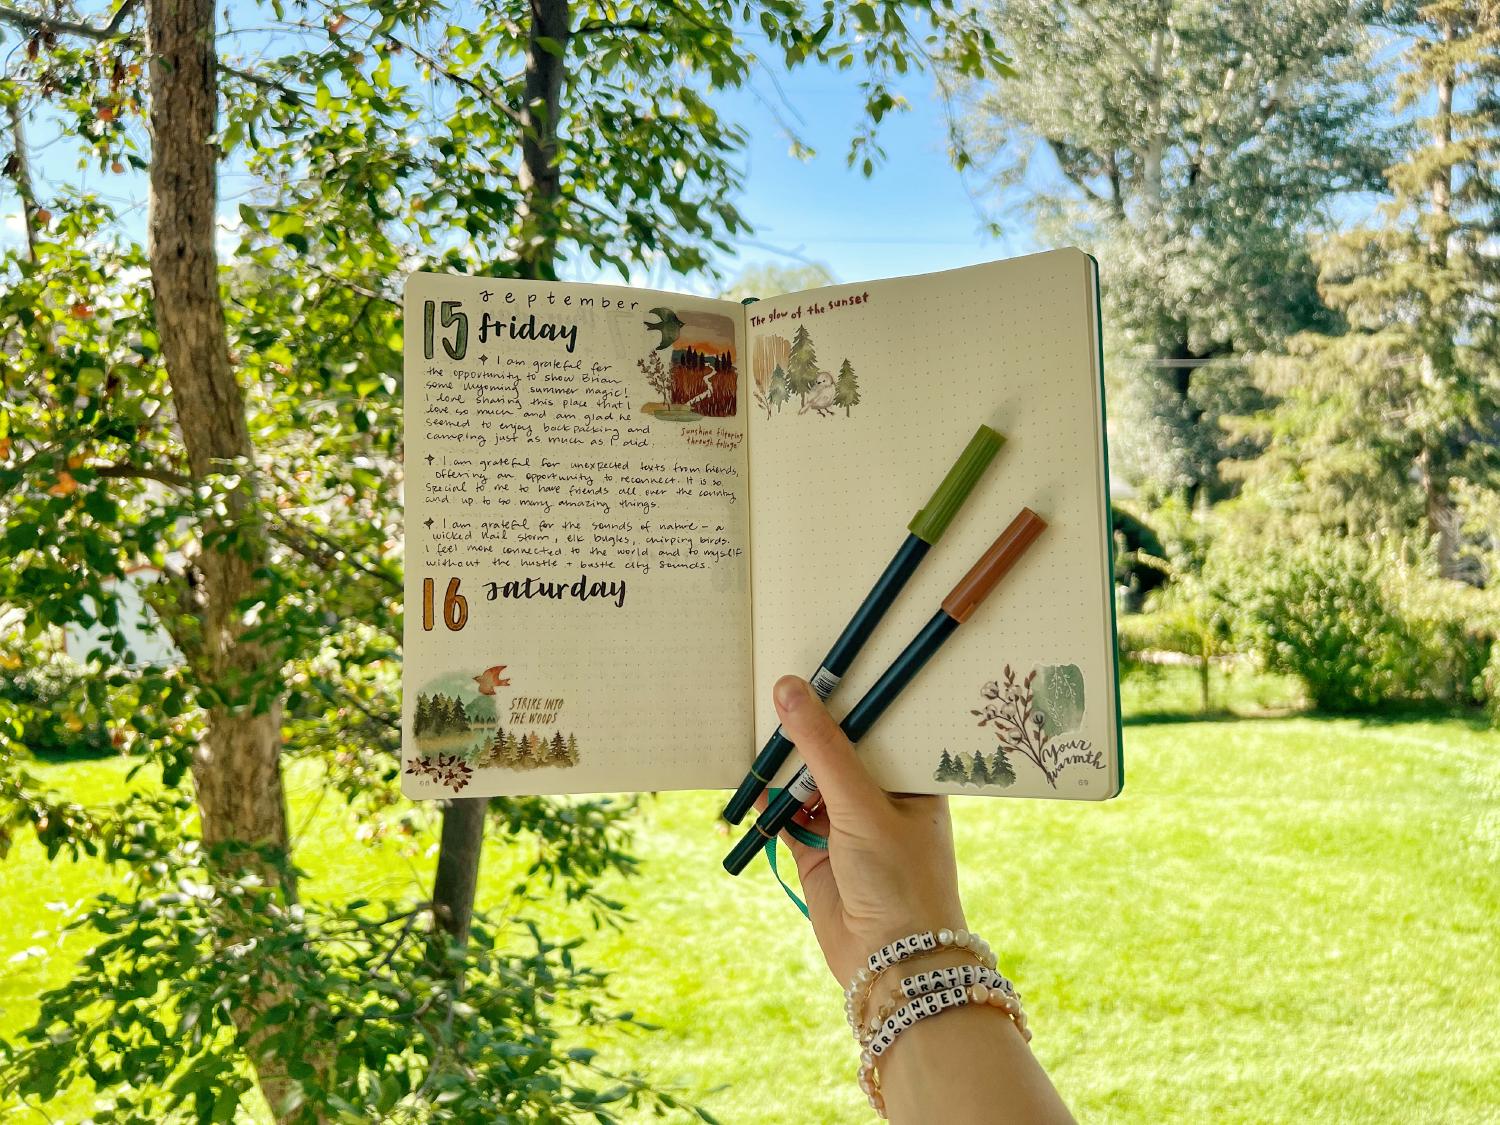 september
15 friday
✦ I am grateful for
the opportunity to show Brian
some Wyoming summer magic!
I love sharing this place that I
love so much and am glad he
seemed to enjoy backpacking and
camping just as much as I did.
Sunshine filtering
through foliage
✦ I am grateful for unexpected texts from friends,
offering an opportunity to reconnect. It is so
special to me to have friends all over the country
and up to so many amazing things.
✦ I am grateful for the sounds of nature – a
wicked hail storm, elk bugles, chirping birds.
I feel more connected to the world and to myself
without the hustle + bustle city sounds.
16 saturday
STRIKE INTO
THE WOODS
68
The glow of the sunset
Your
warmth
69
REACH
GRATEFUL
GROUNDED